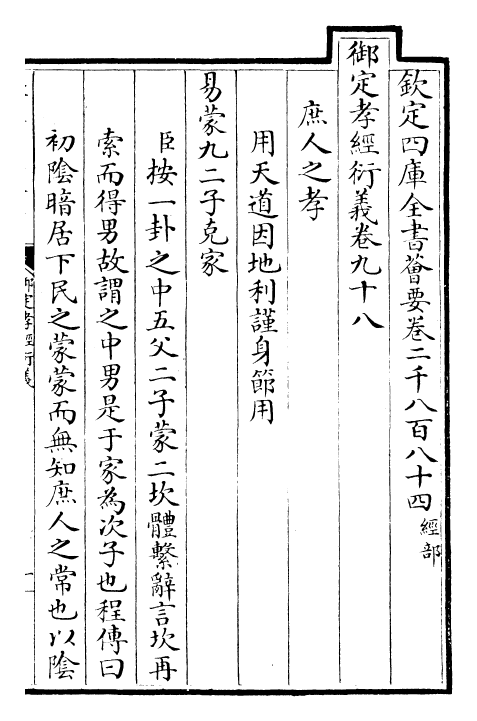 欽定四庫全書薈要卷二千八百八十四 經部
御定孝經衍義卷九十八
庶人之孝
用天道因地利謹身節用
易蒙九二子克家
臣按一卦之中五父二子蒙二坎體繫辭言坎再
索而得男故謂之中男是于家為次子也程傳曰
初陰暗居下民之蒙蒙而無知庶人之常也以陰
御定孝經衍義